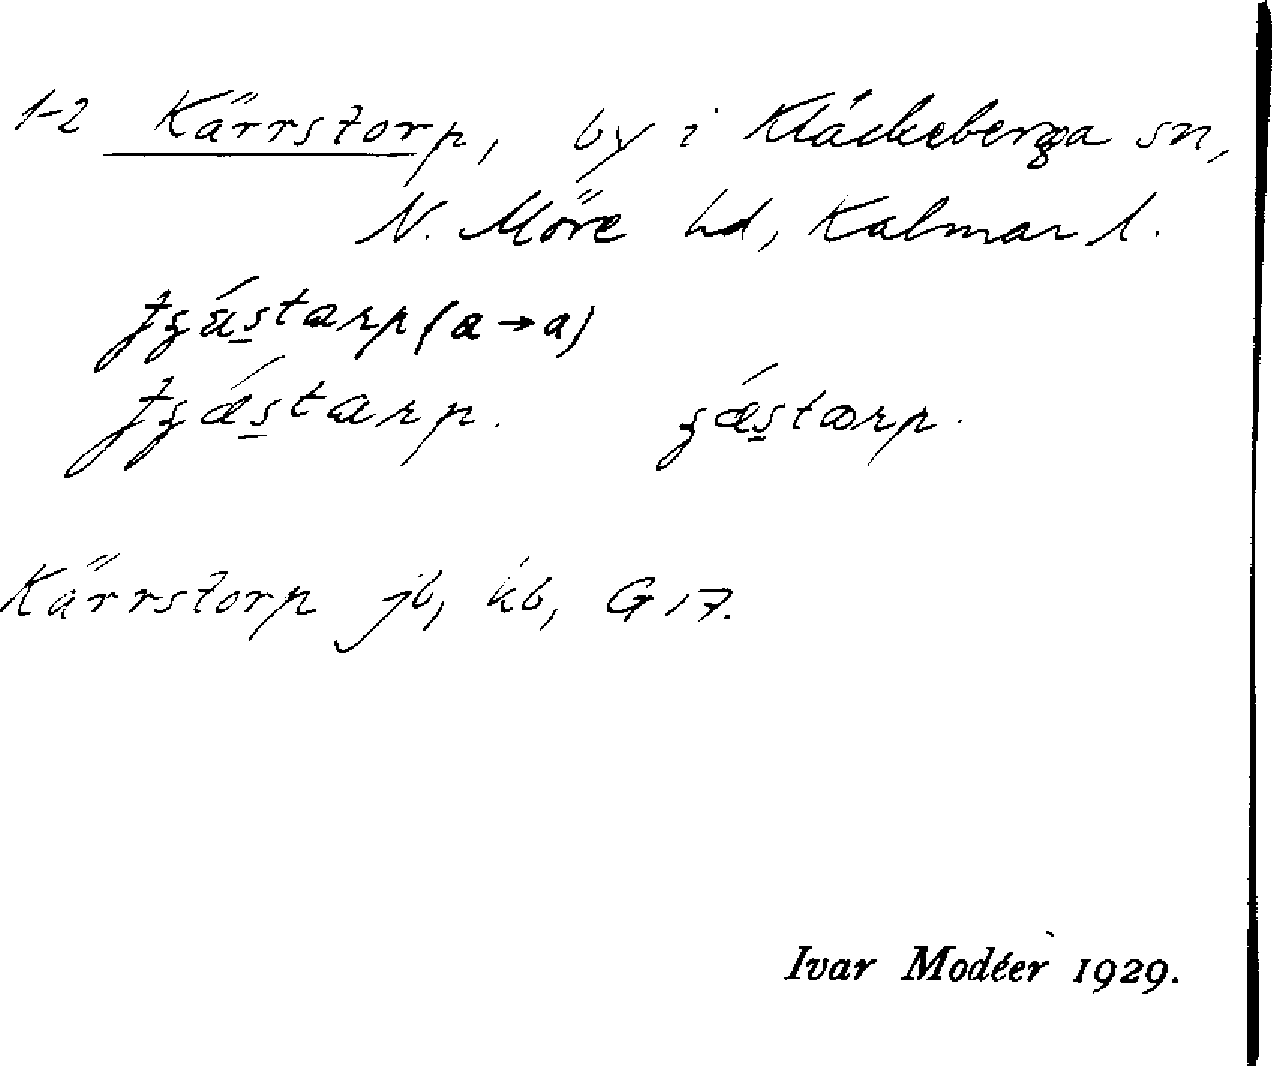 1-2 Kärrstorp, by i Kläckeberga sn,
N. Möre hd, Kalmar l.
Kärrstorp jb, kb, G 17.
Ivar Modéer 1929.